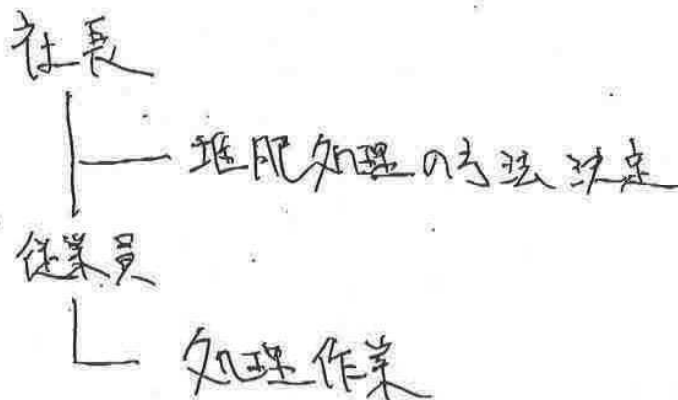 社長
堆肥処理の方法決定
従業員
処理作業